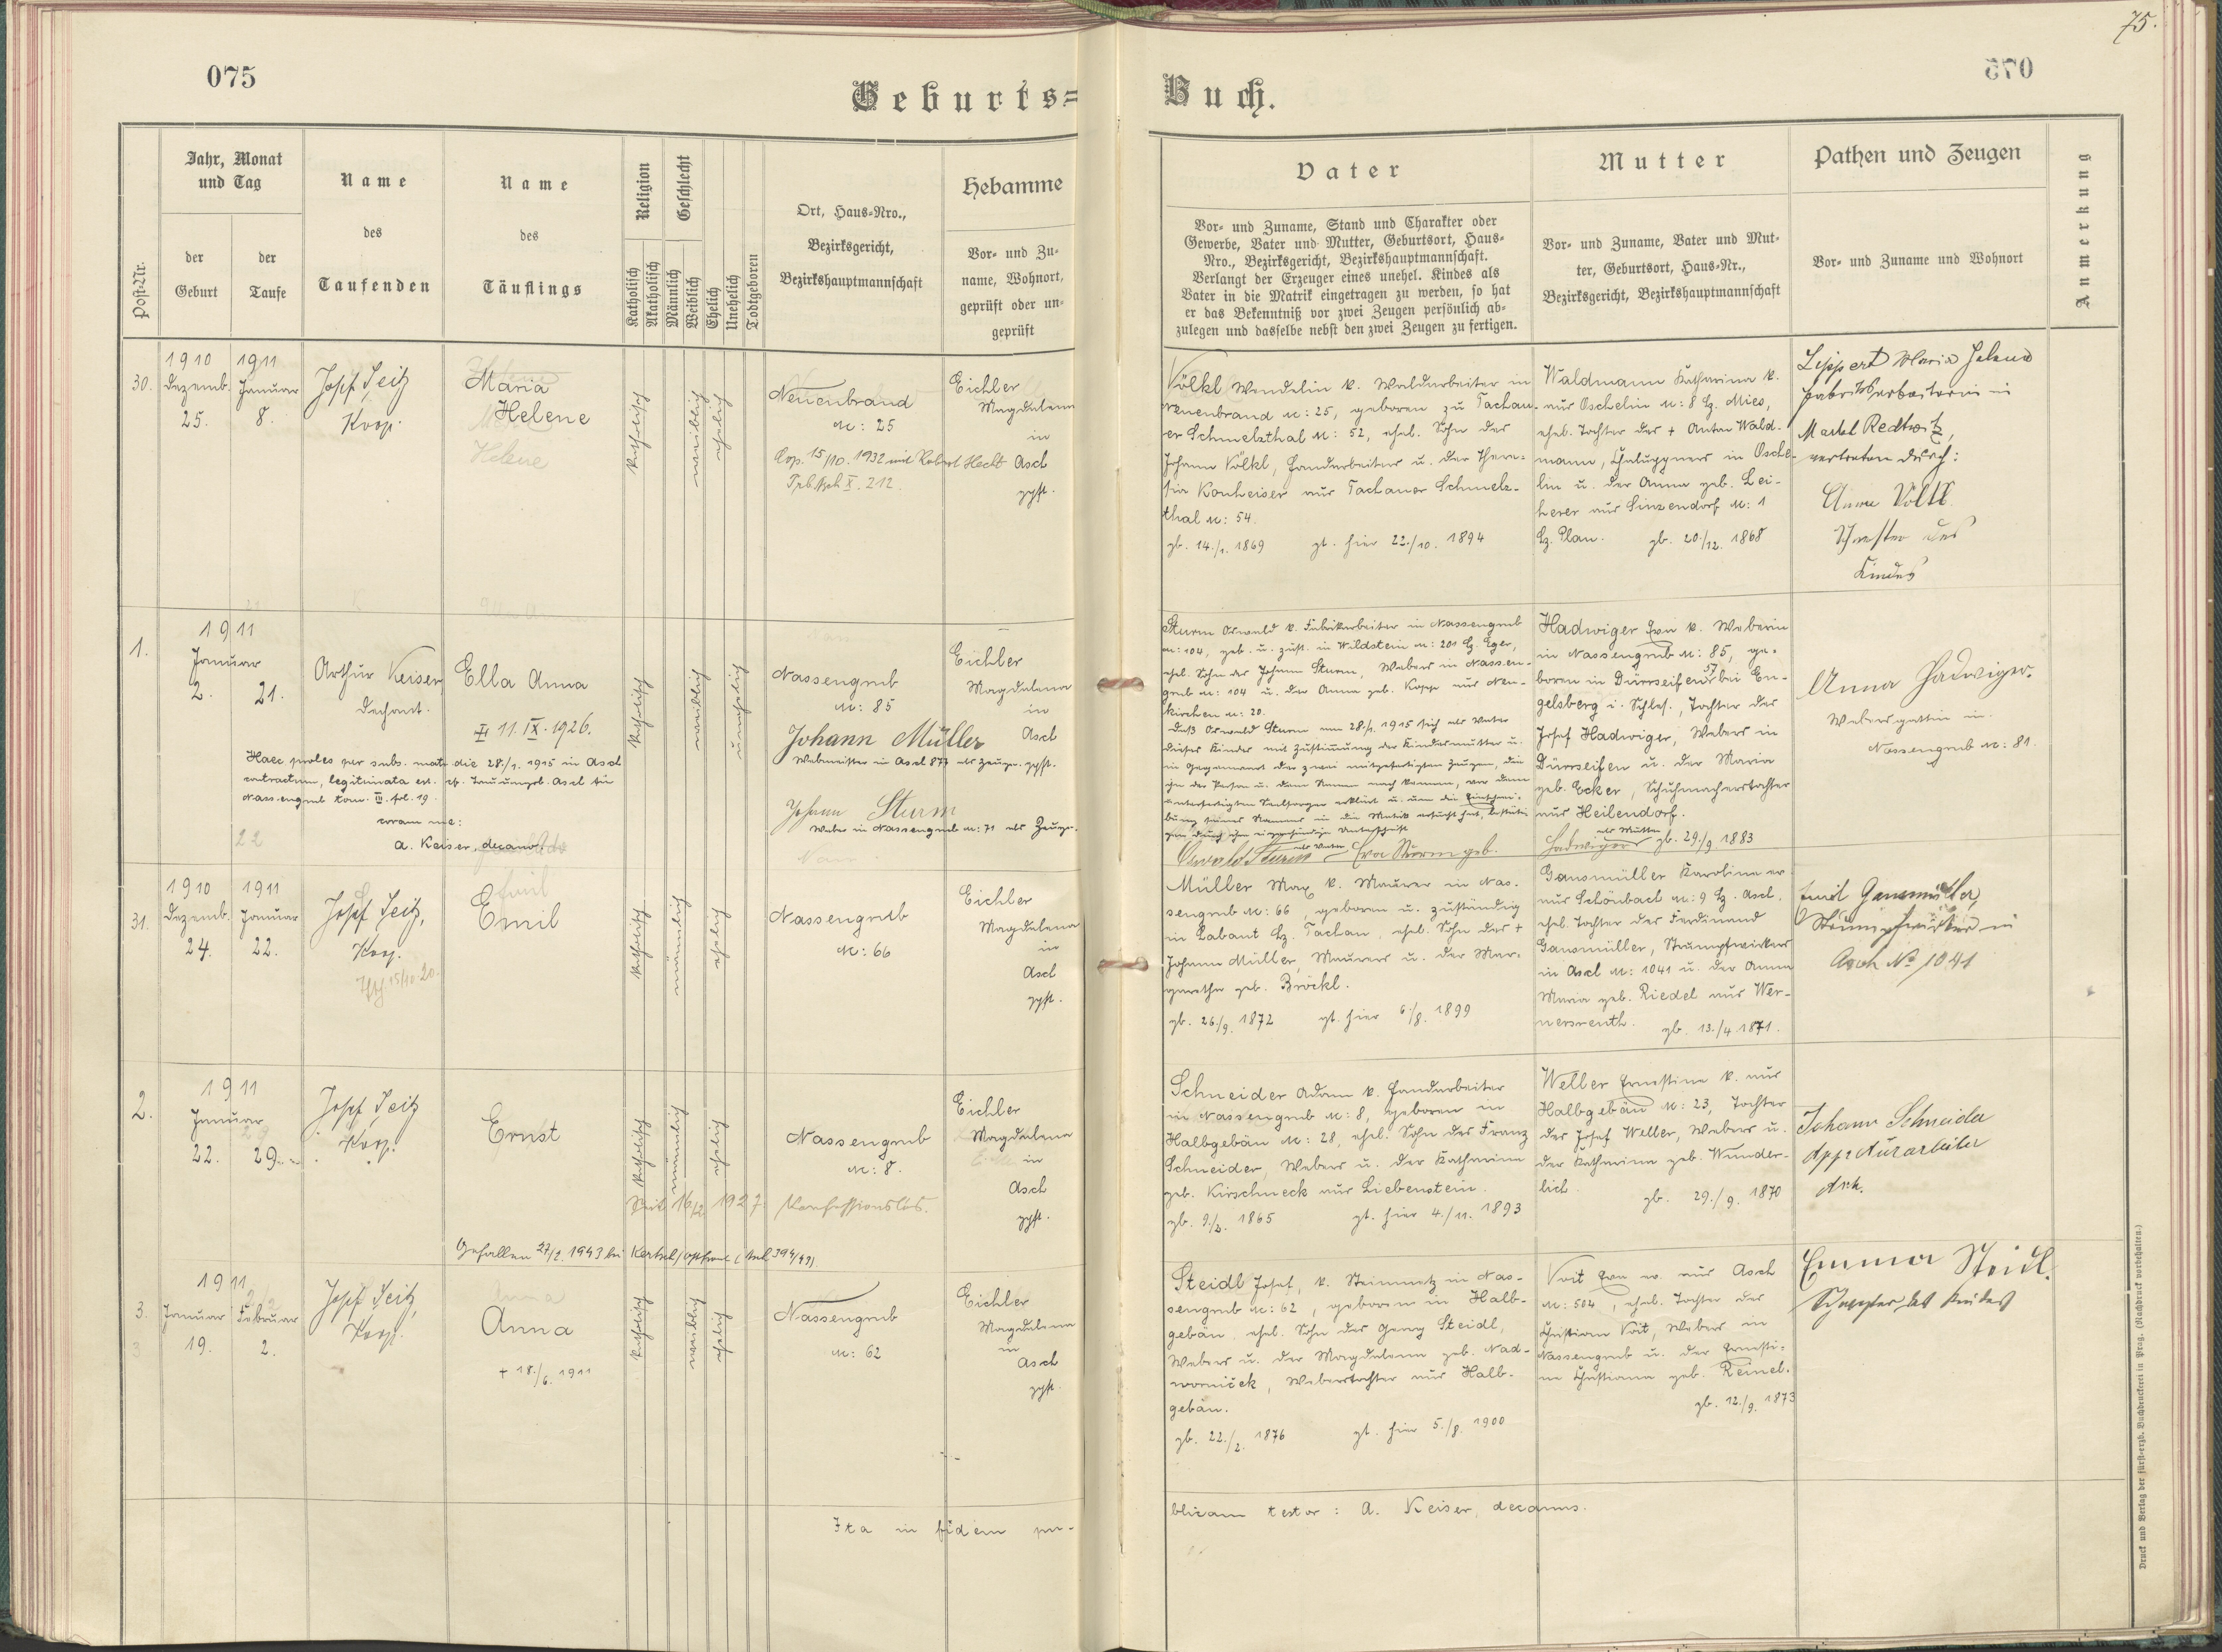 75.
075
Geburts=
Buch.
Jahr, Monat
und Tag
der
Geburt
der
Taufe
Post-Nr.
Name
des
Taufenden
Name
des
Täuflings
Religion
Katholisch
Akatholisch
Geschlecht
Männlich
Weiblich
Ehelich
Unehelich
Todtgeboren
Ort, Haus=Nro.,
Bezirksgericht,
Bezirkshauptmannschaft
Hebamme
Vor= und Zu=
name, Wohnort,
geprüft oder un=
geprüft
Vater
Vor= und Zuname, Stand und Charakter oder
Gewerbe, Vater und Mutter, Geburtsort, Haus=
Nro., Bezirksgericht, Bezirkshauptmannschaft.
Verlangt der Erzeuger eines unehel. Kindes als
Vater in die Matrik eingetragen zu werden, so hat
er das Bekenntniß vor zwei Zeugen persönlich ab=
zulegen und dasselbe nebst den zwei Zeugen zu fertigen.
Mutter
Vor= und Zuname, Vater und Mut=
ter, Geburtsort, Haus=Nr.,
Bezirksgericht, Bezirkshauptmannschaft
Pathen und Zeugen
Vor= und Zuname und Wohnort
Anmerkung
30.
1910
Dezemb.
25.
1911
Januar
8.
Josef Seitz
Koop.
Maria
Helene
katholisch
weiblich
ehelich
Neuenbrand
N: 25
Cop. 15/10. 1932 mit Robert Hecht
X. 212.
Eichler
Magdalena
in
Asch
gpft.
Völkl Wendelin k. Waldarbeiter in
Neuenbrand N: 25, geboren zu Tachau-
er Schmelzthal N: 52, ehel. Sohn des
Johann Völkl, Handarbeiters u. der There-
sia Konheiser aus Tachauer Schmelz-
thal N: 54.
gb. 14./1. 1869 gt. hier 22./10. 1894
Waldmann Katharina k.
aus Oschelin N: 8 Bz. Mies,
ehel. Tochter des + Anton Wald-
mann, Chaluppners in Osche-
lin u. der Anna geb. Lei-
herer aus Sinzendorf N: 1
Bz. Plan. gb. 20./12. 1868
Lippert Maria Helena
Fabriksarbeiterin in
Markt Redtwitz,
vertreten durch:
Anna Völkl
Schwester des
Kindes
1.
1911
Januar
2. 21.
Arthur Keiser
Dechant.
Ella Anna
11. IX. 1926.
katholisch
weiblich
unehelich
Nassengrub
N: 85
Johann Müller
Webmeister in Asch 877 als Zeuge.
Johann Sturm
Weber in Nassengrub N: 71 als Zeuge.
Eichler
Magdalena
in
Asch
gpft.
Haec proles per subs. matr. die 28./1. 1915 in Asch
contractum, legitimata est. cf. Trauungsb. Asch für
Nassengrub Tom. III. fol. 19.
coram me:
A. Keiser, decanus.
Sturm Oswald k. Fabrikarbeiter in Nassengrub
N: 104, geb. u. zust. in Wildstein N: 201 Bz. Eger,
ehel. Sohn des Johann Sturm, Webers in Nassen-
grub N: 104 u. der Anna geb. Kopp aus Neu-
kirchen N: 20.
Daß Oswald Sturm am 28./1. 1915 sich als Vater
dieses Kindes mit Zustimmung der Kindesmutter u.
in Gegenwart der zwei mitgefertigten Zeugen, die
ihn der Person u. dem Namen nach kennen, vor dem
unterfertigten Seelsorger erklärt u. um die Einschrei-
bung seines Namens in die Matrik ersucht hat, bestäti-
gen durch ihre eigenhändige Unterschrift
Oswald Sturm als Vater Eva Sturm geb.
Hadwiger Eva k. Weberin
in Nassengrub N: 85, ge-
boren in Dürrseifen 57 bei En-
gelsberg i. Schles., Tochter des
Josef Hadwiger, Webers in
Dürrseifen u. der Maria
geb. Ecker, Schuhmacherstochter
aus Heilendorf.
Hadwiger als Mutter gb. 29./9. 1883
Anna Hadwiger.
Webersgattin in
Nassengrub N: 81.
31.
1910
Dezemb.
24.
1911
Januar
22.
Josef Seitz,
Koop.
15/10.20.
Emil
katholisch
männlich
ehelich
Nassengrub
N: 66
Eichler
Magdalena
in
Asch
gpft.
Müller Max k. Maurer in Nas-
sengrub N: 66, geboren u. zuständig
in Labant Bz. Tachau ehel. Sohn des +
Johann Müller, Maurers u. der Mar-
garetha geb. Bröckl.
gb. 26./9. 1872 gt. hier 6./8. 1899
Gansmüller Karolina ev.
aus Schönbach N: 9 Bz. Asch.
ehel. Tochter des Ferdinand
Gansmüller, Strumpfwirkers
in Asch N: 1041 u. der Anna
Maria geb. Riedel aus Wer-
nersreuth. gb. 13./4. 1871.
Emil Gansmüller,
Strumpfwirker in
Asch No 1041
2.
1911
Januar
22. 29.
Josef Seitz
Koop.
Ernst
katholisch
männlich
ehelich
Nassengrub
N: 8.
Seit 16/2. 1927. Konfessionslos.
Eichler
Magdalena
in
Asch
gpft.
Gefallen 27/2. 1943 bei
Schneider Adam k. Handarbeiter
in Nassengrub N: 8, geboren in
Halbgebäu N: 28, ehel. Sohn des Franz
Schneider, Webers u. der Katharina
geb. Kirschneck aus Liebenstein.
gb. 9./2. 1865 gt. hier 4./11. 1893
Weller Ernestine k. aus
Halbgebäu N: 23, Tochter
des Josef Weller, Webers u.
der Katharina geb. Wunder-
lich. gb. 29./9. 1870
Johann Schneider
Appreturarbeiter
Asch.
3.
1911
Januar
19.
Februar
2.
Josef Seitz,
Koop.
Anna
+ 18./6. 1911
katholisch
weiblich
ehelich
Nassengrub
N: 62
Eichler
Magdalena
in
Asch
gpft.
Steidl Josef, k. Steinmetz in Nas-
sengrub N: 62, geboren in Halb-
gebäu, ehel. Sohn des Georg Steidl,
Webers u. der Magdalena geb. Nad-
worniček, Weberstochter aus Halb-
gebäu.
gb. 22./2. 1876 gt. hier 5./8. 1900
Voit Eva ev. aus Asch
N: 504, ehel. Tochter des
Christian Voit, Webers in
Nassengrub u. der Ernesti-
ne Christiana geb. Reinel.
gb. 12./9. 1873
Emma Steidl.
Schwester des Kindes
Ita in fidem pu-
blicam testor: A. Keiser, decanus.
Druck und Verlag der fürst=erzb. Buchdruckerei in Prag. (Nachdruck vorbehalten.)